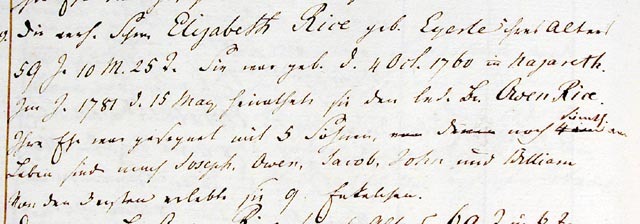 9. Die verh. Schw. Elisabeth Rice geb. Eyerle ihres Alters
59 J. 10 M. 25 T. Sie war geb. d. 4 Oct. 1760 in Nazareth.
Im J. 1781 d. 15 May heirathete sie den led. Br. Owen Rice.
Ihre Ehe war gesegnet mit 5 Söhnen, von denen noch sämtl. am
Leben sind, nemlich Joseph, Owen, Jacob, John und William
Von den Ersten erlebte sie 9 Enkelchen.